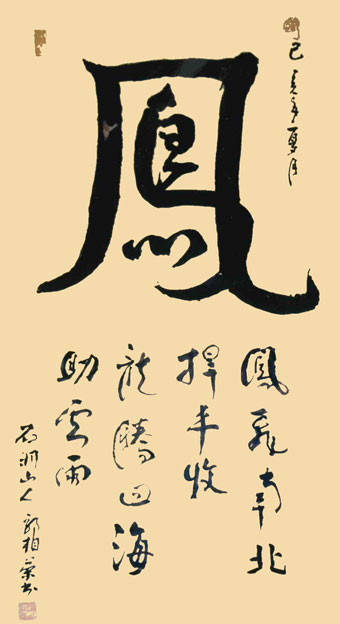 己亥年夏月
鳳
鳳飛南北
捍丰收
龍騰四海
助雲雨
山人 郭相 书